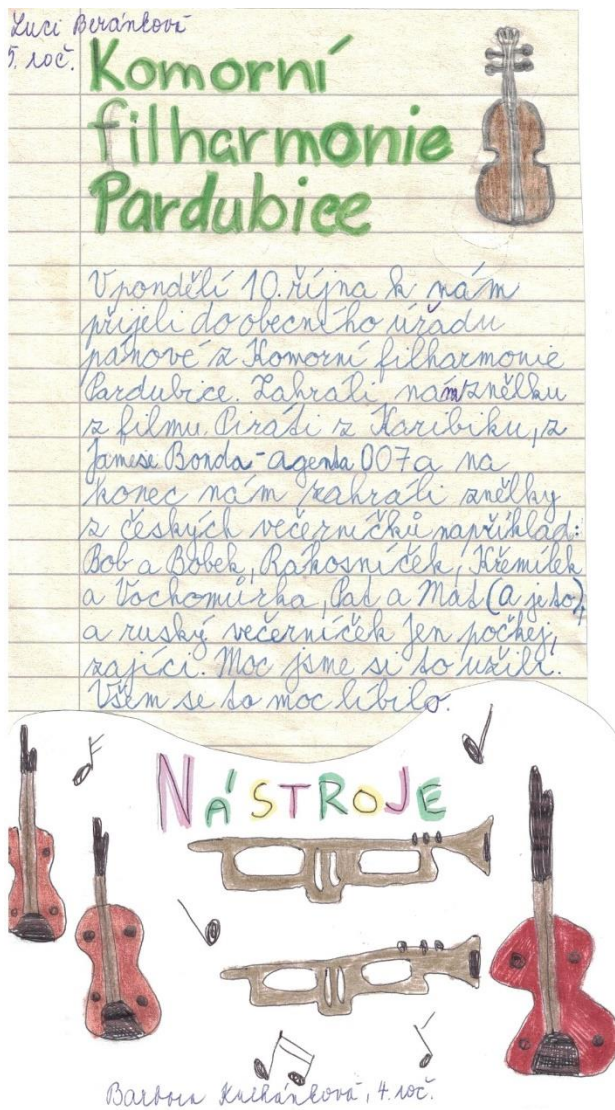 Luci Beránková
5. roč.
Komorní
filharmonie
Pardubice
V pondělí 10. října k nám
přijeli do obecního úřadu
pánové z Komorní filharmonie
Pardubice. Zahráli nám znělku
z filmu Piráti z Karibiku, z
Jamese Bonda - agenta 007 a na
konec nám zahráli znělky
z českých večerníčků například:
Bob a Bobek, Rákosníček, Křemílek
a Vochomůrka, Pat a Mat (a je to),
a ruský večerníček Jen počkej,
zajíci. Moc jsme si to užili.
Všem se to moc líbilo.
NÁSTROJE
Barbora , 4. roč.